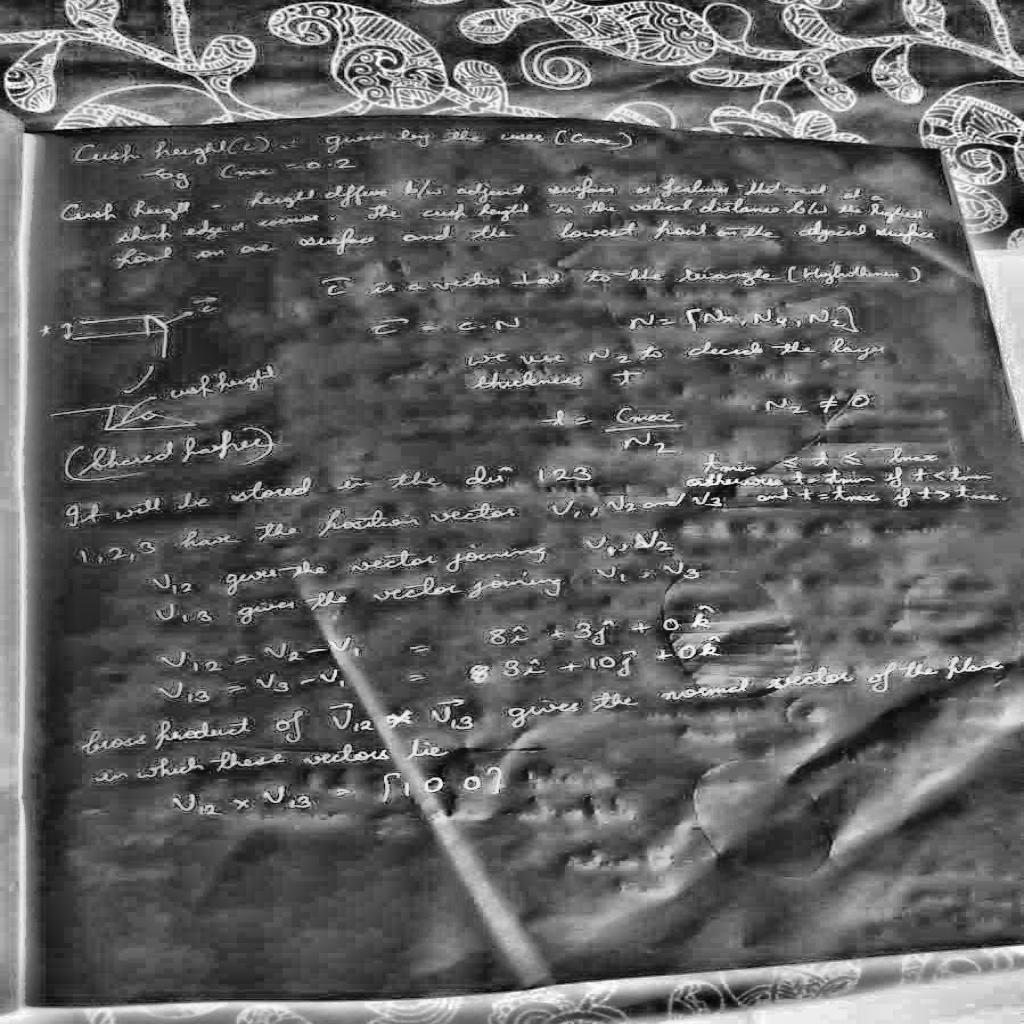 Cush height(c) - given by the user (Cmax)
eg Cmax = 0.2
Cush height - height differ b/w adjacent surfaces or features that meet at a
sharp edge or corner. The cush height is the vertical distance b/w the highest
point on one surface and the lowest point on the adjacent surface
c is a vector to the triangle
c = c · N N = [Nx, Ny, Nz]
we use Nz to decide the layer
thickness t
cush height
t = Cmax / Nz Nz ≠ 0
tmin ≤ t ≤ tmax
otherwise t = tmin if t < tmin
and t = tmax if t > tmax
It will be stored in the dir 123
1,2,3 have the position vector V1, V2 and V3
V12 gives the vector joining V1, V2
V13 gives the vector joining V1, V3
V12 = V2 - V1 = 8î + 3ĵ + 0k̂
V13 = V3 - V1 = 3î + 10ĵ + 0k̂
Cross product of V12 × V13 gives the normal vector of the plane
in which these vectors lie
V12 × V13 = [1 0 0]